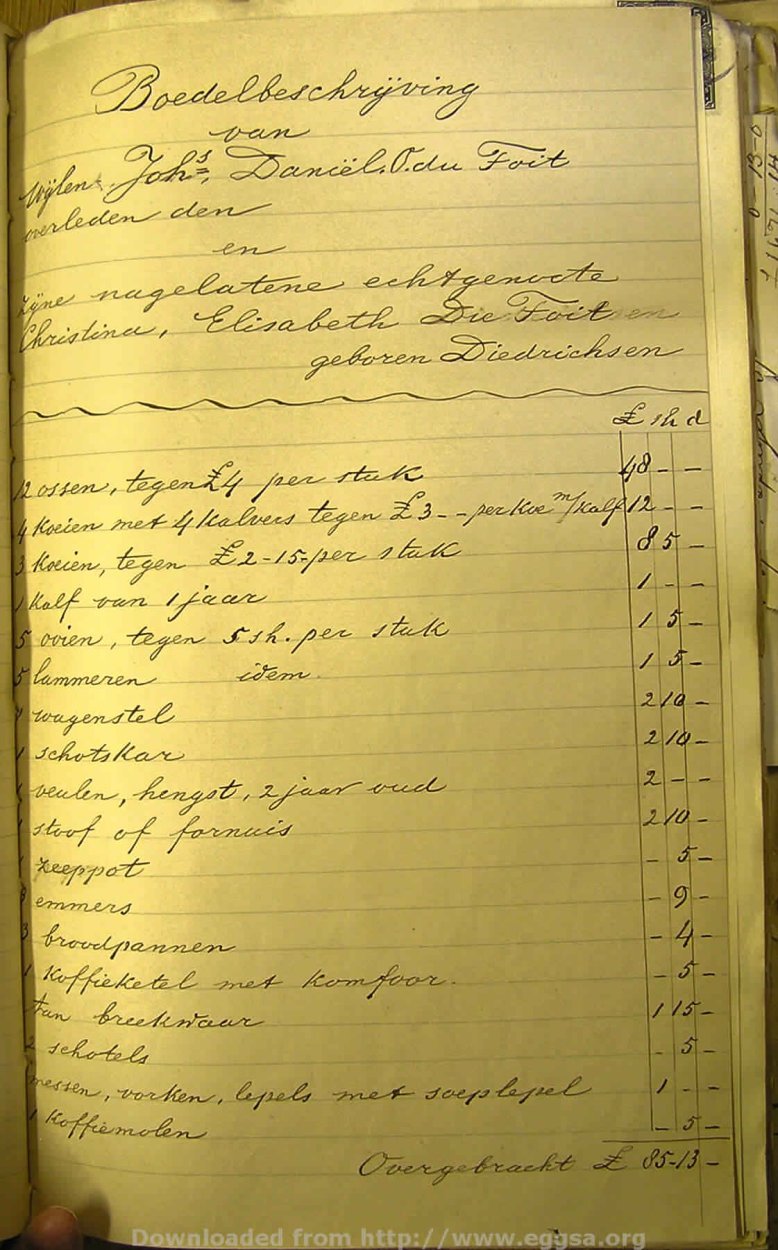 Boedelbeschrijving
van
Wijlen Joh.s Daniël. O. du Toit
overleden den
en
zijne nagelatene echtgenoote
Christina, Elisabeth Die Toit
geboren Diedrichsen
£ sh d
12 ossen, tegen £4 per stuk 48 - -
4 Koeien met 4 Kalvers tegen £3 - - per Koe m/Kalf 12 - -
3 Koeien, tegen £2-15- per stuk 8 5 -
1 Kalf van 1 jaar 1 - -
5 ooien, tegen 5 sh. per stuk 1 5 -
5 lammeren idem. 1 5 -
1 wagenstel 2 10 -
1 schotskar 2 10 -
1 veulen, hengst, 2 jaar oud 2 - -
1 stoof of fornuis 2 10 -
1 zeeppot - 5 -
3 emmers - 9 -
3 broodpannen - 4 -
1 Koffieketel met Komfoor. - 5 -
breekwaar 1 15 -
2 schotels - 5 -
messen, vorken, lepels met soeplepel 1 - -
1 Koffiemolen - 5 -
Overgebracht £ 85-13 -
0-13-0
Downloaded from http://www.eggsa.org